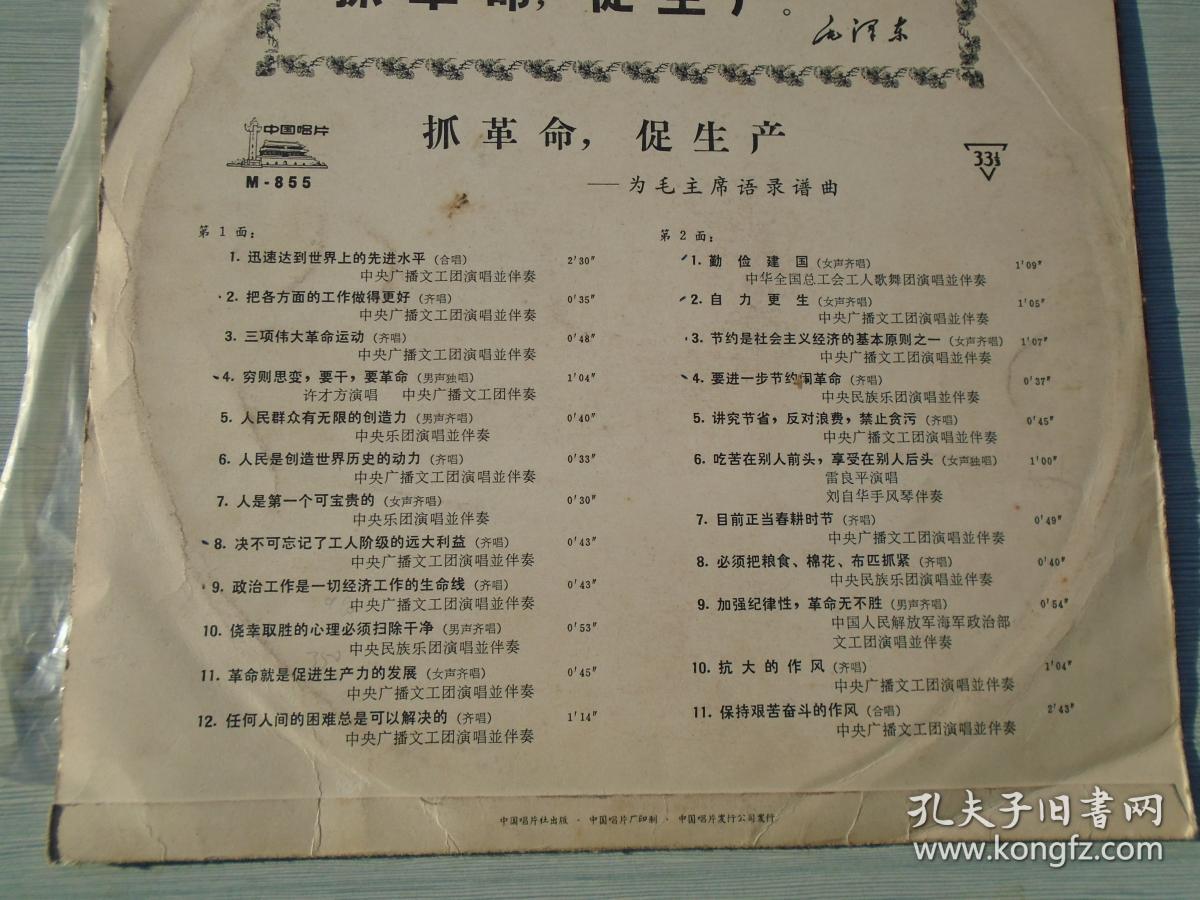 抓革命，促生产。
毛泽东
中国唱片
M-855
抓革命，促生产
——为毛主席语录谱曲
33⅓
第1面：
1. 迅速达到世界上的先进水平（合唱） 2′30″
中央广播文工团演唱並伴奏
2. 把各方面的工作做得更好（齐唱） 0′35″
中央广播文工团演唱並伴奏
3. 三项伟大革命运动（齐唱） 0′48″
中央广播文工团演唱並伴奏
4. 穷则思变，要干，要革命（男声独唱） 1′04″
许才方演唱 中央广播文工团伴奏
5. 人民群众有无限的创造力（男声齐唱） 0′40″
中央乐团演唱並伴奏
6. 人民是创造世界历史的动力（齐唱） 0′33″
中央广播文工团演唱並伴奏
7. 人是第一个可宝贵的（女声齐唱） 0′30″
中央乐团演唱並伴奏
8. 决不可忘记了工人阶级的远大利益（齐唱） 0′43″
中央广播文工团演唱並伴奏
9. 政治工作是一切经济工作的生命线（齐唱） 0′43″
中央广播文工团演唱並伴奏
10. 侥幸取胜的心理必须扫除干净（男声齐唱） 0′53″
中央民族乐团演唱並伴奏
11. 革命就是促进生产力的发展（女声齐唱） 0′45″
中央广播文工团演唱並伴奏
12. 任何人间的困难总是可以解决的（齐唱） 1′14″
中央广播文工团演唱並伴奏
第2面：
1. 勤俭建国（女声齐唱） 1′09″
中华全国总工会工人歌舞团演唱並伴奏
2. 自力更生（女声齐唱） 1′05″
中央广播文工团演唱並伴奏
3. 节约是社会主义经济的基本原则之一（女声齐唱） 1′07″
中央广播文工团演唱並伴奏
4. 要进一步节约闹革命（齐唱） 0′37″
中央民族乐团演唱並伴奏
5. 讲究节省，反对浪费，禁止贪污（齐唱） 0′45″
中央广播文工团演唱並伴奏
6. 吃苦在别人前头，享受在别人后头（女声独唱） 1′00″
雷良平演唱
刘自华手风琴伴奏
7. 目前正当春耕时节（齐唱） 0′49″
中央广播文工团演唱並伴奏
8. 必须把粮食、棉花、布匹抓紧（齐唱） 0′40″
中央民族乐团演唱並伴奏
9. 加强纪律性，革命无不胜（男声齐唱） 0′54″
中国人民解放军海军政治部
文工团演唱並伴奏
10. 抗大的作风（齐唱） 1′04″
中央广播文工团演唱並伴奏
11. 保持艰苦奋斗的作风（合唱） 2′43″
中央广播文工团演唱並伴奏
中国唱片社出版 · 中国唱片厂印制 · 中国唱片发行公司发行
孔夫子旧书网
www.kongfz.com